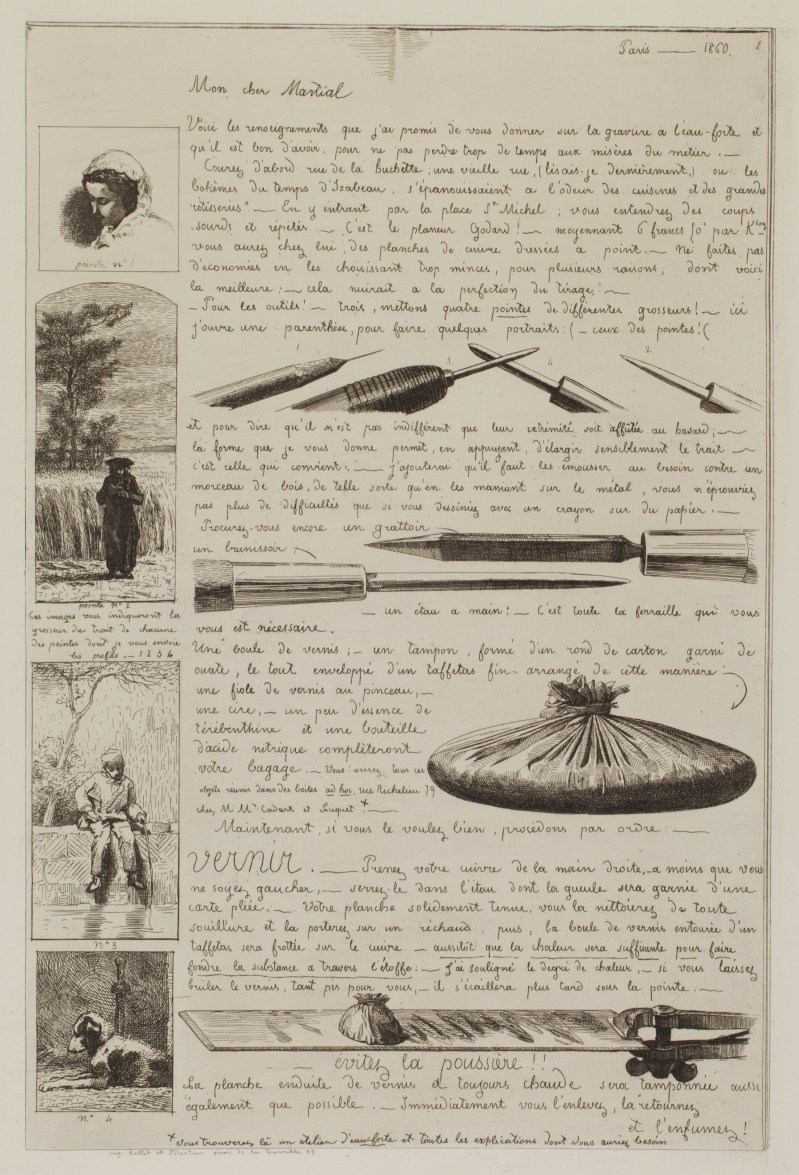 Paris — 1860.
Mon cher Martial
Voici les renseignements que j'ai promis de vous donner sur la gravure a l'eau-forte et
qu'il est bon d'avoir, pour ne pas perdre trop de temps aux misères du métier. —
Courez d'abord rue de la Huchette, une vieille rue, (lisais-je dernièrement,) ou les
bohèmes du temps d'Isabeau, s'épanouissaient a l'odeur des cuisines et des grandes
rôtisseries" — En y entrant par la place St Michel, vous entendrez des coups
sourds et répétés. — C'est le planeur Godard! — moyennant 6 francs 50 par K
vous aurez chez lui, des planches de cuivre dressées a point. — Ne faites pas
d'économies en les choisissant trop minces, pour plusieurs raisons, dont voici
la meilleure: — cela nuirait a la perfection du tirage! —
— Pour les outils! — trois, mettons quatre pointes de différentes grosseurs! — ici
j'ouvre une parenthèse, pour faire quelques portraits: ( — ceux des pointes! (
pointe n° 1
1
3
4
2
et pour dire qu'il n'est pas indifférent que leur extrémité soit affûtée au hasard; —
la forme que je vous donne permet, en appuyant, d'élargir sensiblement le trait —
c'est celle qui convient. — J'ajouterai qu'il faut les émousser au besoin contre un
morceau de bois, de telle sorte qu'en les maniant sur le métal, vous n'éprouviez
pas plus de difficultés que si vous dessiniez avec un crayon sur du papier. —
Procurez-vous encore un grattoir
un brunissoir
pointe N° 2
Ces images vous indiqueront la
grosseur du trait de chacune
des pointes dont je vous envoie
les profils — 1 2 3 4
— un étau a main! — C'est toute la ferraille qui vous
vous est nécessaire.
Une boule de vernis; — un tampon, formé d'un rond de carton garni de
ouate, le tout enveloppé d'un taffetas fin arrangé de cette manière:
une fiole de vernis au pinceau, —
une cire, — un peu d'essence de
térébenthine et une bouteille
d'acide nitrique complèteront
votre bagage. — Vous aurez tous ces
objets réunis dans des boites ad hoc, rue Richelieu 79
chez M Mrs Cadart et Luquet + —
Maintenant, si vous le voulez bien, procédons par ordre: —
Vernir. — Prenez votre cuivre de la main droite, a moins que vous
ne soyez gaucher, — serrez-le dans l'étau dont la gueule sera garnie d'une
carte pliée. — Votre planche solidement tenue, vous la nettoierez de toute
souillure et la porterez sur un réchaud, puis, la boule de vernis entourée d'un
taffetas sera frottée sur le cuivre — aussitôt que la chaleur sera suffisante pour faire
fondre la substance a travers l'étoffe: — J'ai souligné le degré de chaleur, — si vous laissez
brûler le vernis, tant pis pour vous, — il s'écaillera plus tard sous la pointe. —
N° 3
— évitez la poussière!!
La planche enduite de vernis et toujours chaude sera tamponnée aussi
également que possible. — Immédiatement vous l'enlevez, la retournez
et l'enfumez!
N° 4
+ vous trouverez là un atelier d'eau forte et toutes les explications dont vous auriez besoin